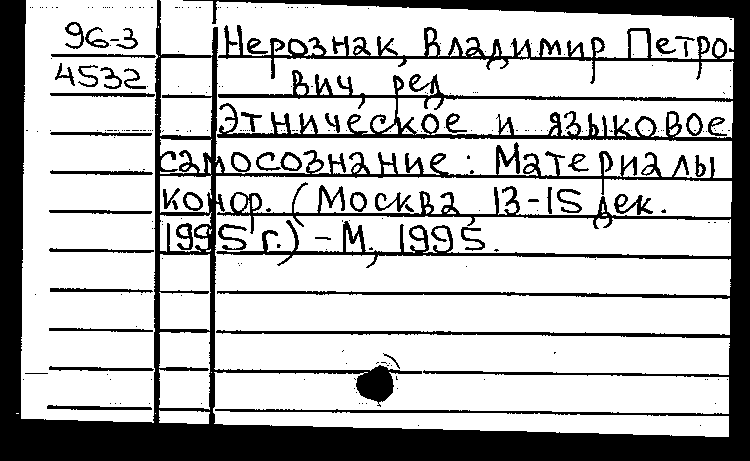 96-3
4532
Нерознак, Владимир Петро-
вич, ред.
Этническое и языковое
самосознание: Материалы
конф. (Москва, 13-15 дек.
1995 г.) - М., 1995.